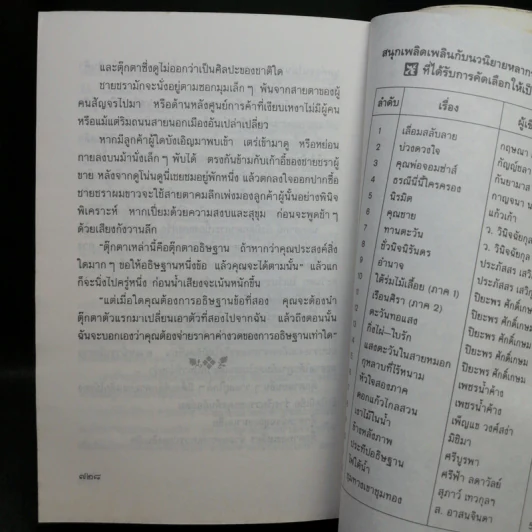 และตุ๊กตาซึ่งดูไม่ออกว่าเป็นศิลปะของชาติใด
ชายชรามักจะนั่งอยู่ตามซอกมุมเล็กๆ พ้นจากสายตาของผู้
คนสัญจรไปมา หรือด้านหลังศูนย์การค้าที่เงียบเหงาไม่มีผู้คน
หรือแม้แต่ริมถนนสายนอกเมืองอันเปล่าเปลี่ยว
หากมีลูกค้าผู้ใดบังเอิญมาพบเข้า เตร่เข้ามาดู หรือหย่อน
กายลงบนม้านั่งเล็กๆ พับได้ ตรงกันข้ามกับเก้าอี้ของชายชราผู้
ขาย หลังจากดูโน่นดูนี่เชยชมอยู่พักหนึ่ง แล้วตกลงใจออกปากซื้อ
ชายชราผมขาวจะใช้สายตาคมลึกเพ่งมองลูกค้าผู้นั้นอย่างพินิจ
พิเคราะห์ หากเปี่ยมด้วยความสงบและสุขุม ก่อนจะพูดช้าๆ
ด้วยเสียงกังวานลึก
“ตุ๊กตาเหล่านี้คือตุ๊กตาอธิษฐาน ถ้าหากว่าคุณประสงค์สิ่ง
ใดมากๆ ขอให้อธิษฐานหนึ่งข้อ แล้วคุณจะได้ตามนั้น” แล้วแก
ก็จะนิ่งไปครู่หนึ่ง ก่อนน้ำเสียงจะเน้นหนักขึ้น
“แต่เมื่อใดคุณต้องการอธิษฐานข้อที่สอง คุณจะต้องนำ
ตุ๊กตาตัวแรกมาเปลี่ยนเอาตัวที่สองไปจากฉัน แล้วถึงตอนนั้น
ฉันจะบอกเองว่าคุณต้องจ่ายราคาค่างวดของการอธิษฐานเท่าใด”
๗๒๘
สนุกเพลิดเพลินกับนวนิยายหลาก
ที่ได้รับการคัดเลือกให้เป็
ลำดับ เรื่อง ผู้เ
1 เลื่อมสลับลาย กฤษณา
2 บ่วงดวงใจ
3 คุณพ่อจอมซ่าส์
4 ธรณีนี่นี้ใครครอง กาญจนา น
5 นิรมิต แก้วเก้า
6 คุณชาย ว. วินิจฉัยกุล
7 ทานตะวัน ว. วินิจฉัยกุล
8 ชั่วนิจนิรันดร ประภัสสร เสวิกุ
9 อำนาจ ประภัสสร เสวิกุ
ใต้ร่มไม้เลื้อย (ภาค 1) ปิยะพร ศักดิ์เกษม
เรือนศิรา (ภาค 2) ปิยะพร ศักดิ์เกษม
ตะวันทอแสง ปิยะพร ศักดิ์เกษม
กิ่งไผ่-ใบรัก ปิยะพร ศักดิ์เกษม
แสงตะวันในสายหมอก ปิยะพร ศักดิ์เกษม
กุหลาบที่ไร้หนาม เพชรน้ำค้าง
หัวใจสองภาค เพชรน้ำค้าง
ดอกแก้วไกลสวน เพ็ญแข วงศ์สง่า
เงาไม้ในน้ำ มิธิมา
ข้างหลังภาพ ศรีบูรพา
ประทีปอธิษฐาน ศรีฟ้า ลดาวัลย์
ไฟใต้น้ำ สุภาว์ เทวกุลฯ
ขุนทางเขาขุมทอง ส. อาสนจินดา